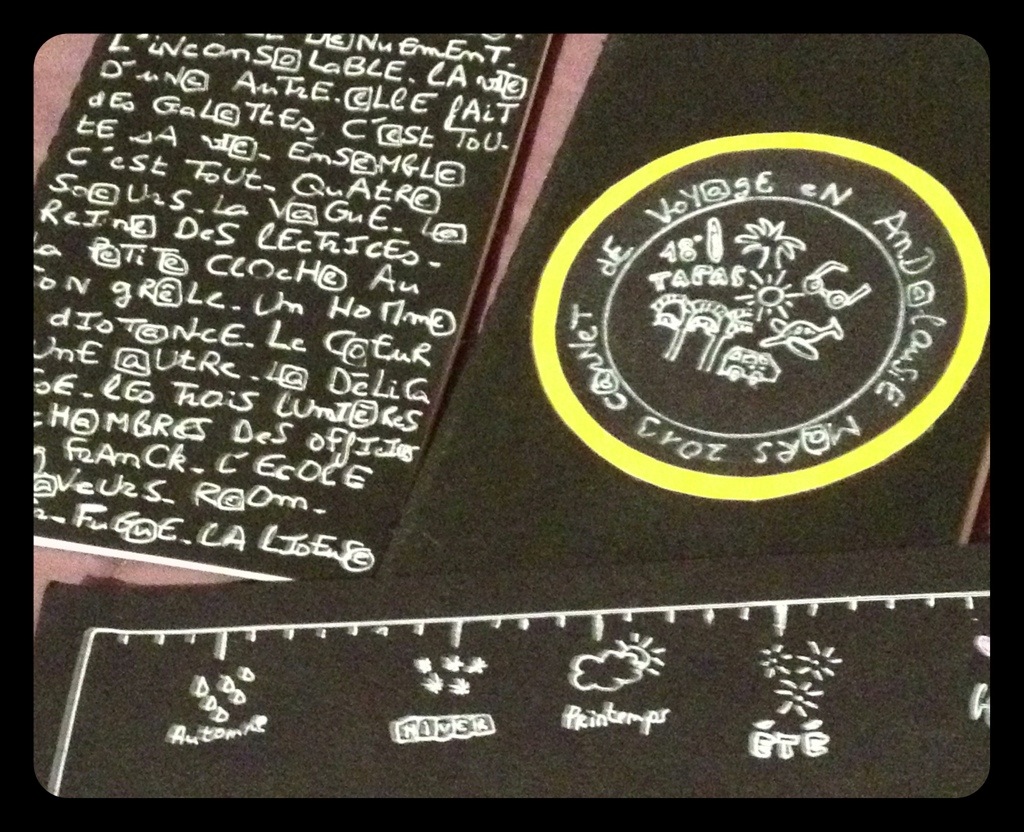 DENUEMENT.
L'iNCONSOLABLE. LA VIE
D'UNE AUTRE. ELLE FAIT
dES GALETTES, C'EST TOU-
TE SA VIE. ENSEMBLE
C'EST TOUT. QUATRE
SOEURS. La VAGUE. La
REINE DES LECTRICES.
La PETITE CLOCHE AU
SON GRELE. UN HOMME
A dISTANCE. Le COEUR
D'UNE AUTRE. LA DELICA
LES TROIS LUMIERES
CHAMBRES DES OFFICIERS
FRANCK. L'ECOLE
SAVEURS. ROOM.
FUGUE. LA LISEUSE
CARNET dE VOYAGE EN ANDALOUSIE MARS 2013
18°
TAPAS
Automne
HIVER
Printemps
ÉTÉ